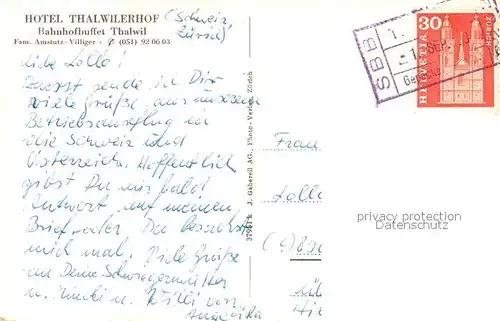 HOTEL THALWILERHOF (Schweiz,
Bahnhofbuffet Thalwil Zürich)
Fam. Amstutz-Villiger · ✆ (051) 92 06 03
Liebe Lolle!
Zuerst sende ich Dir
viele Grüße aus unserem
Betriebsausflug in
die Schweiz und
Österreich. Hoffentlich
gibst Du mir bald
Antwort auf meinen
Brief oder Du besuchst
mich mal. Viele Grüße
an Deine Schwiegermutter
u. u. Willi von
37961 k J. Gaberell AG, Photo-Verlag, Zürich
SBB
1. SEP.
30
HELVETIA
ZÜRICH
Frau
Lolle
privacy protection
Datenschutz